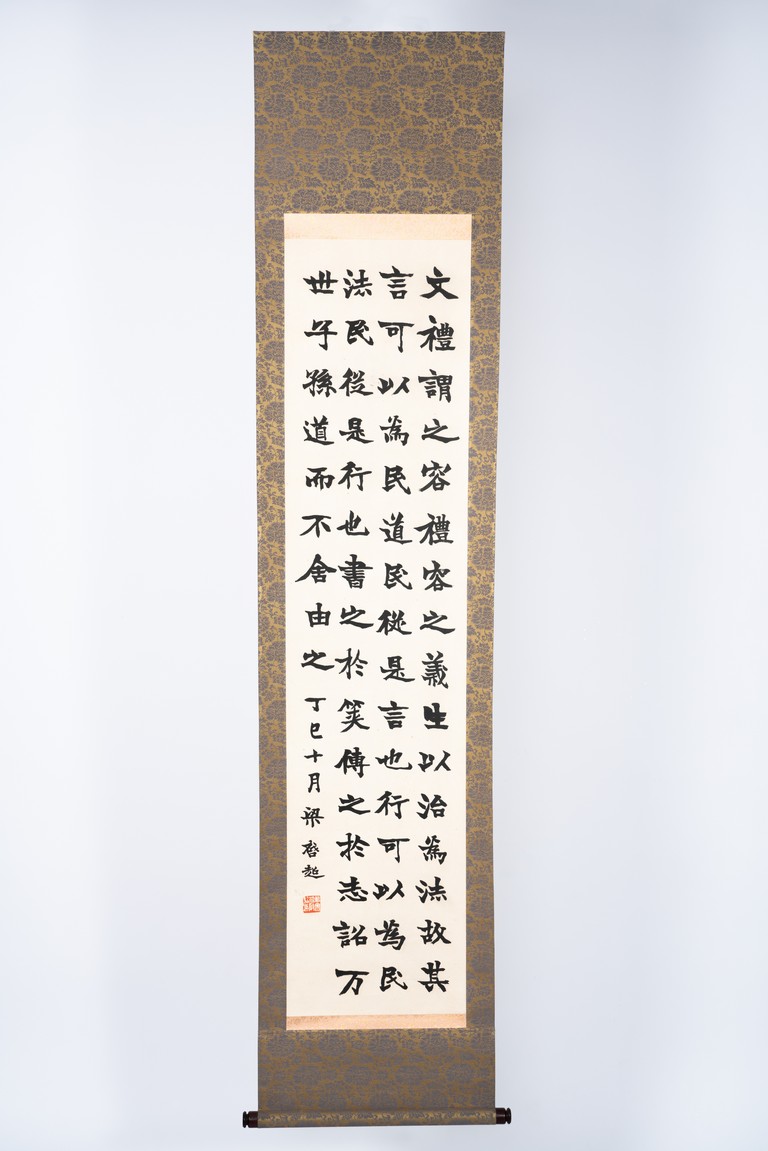 文禮謂之容禮容之義生以治為法故其
言可以為民道民從是言也行可以為民
法民從是行也書之於筴傳之於志詔万
世子孫道而不舍由之
丁巳十月梁啓超